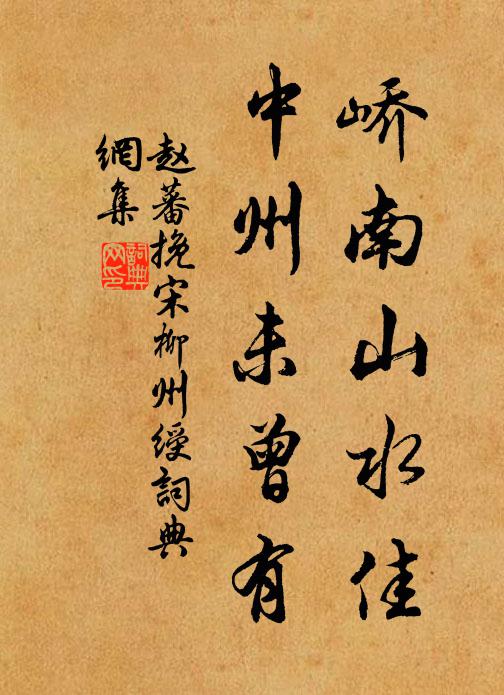 峤南山水佳
中州未曾有
赵蕃挽宋柳州绶詞典
網集
詞典网印